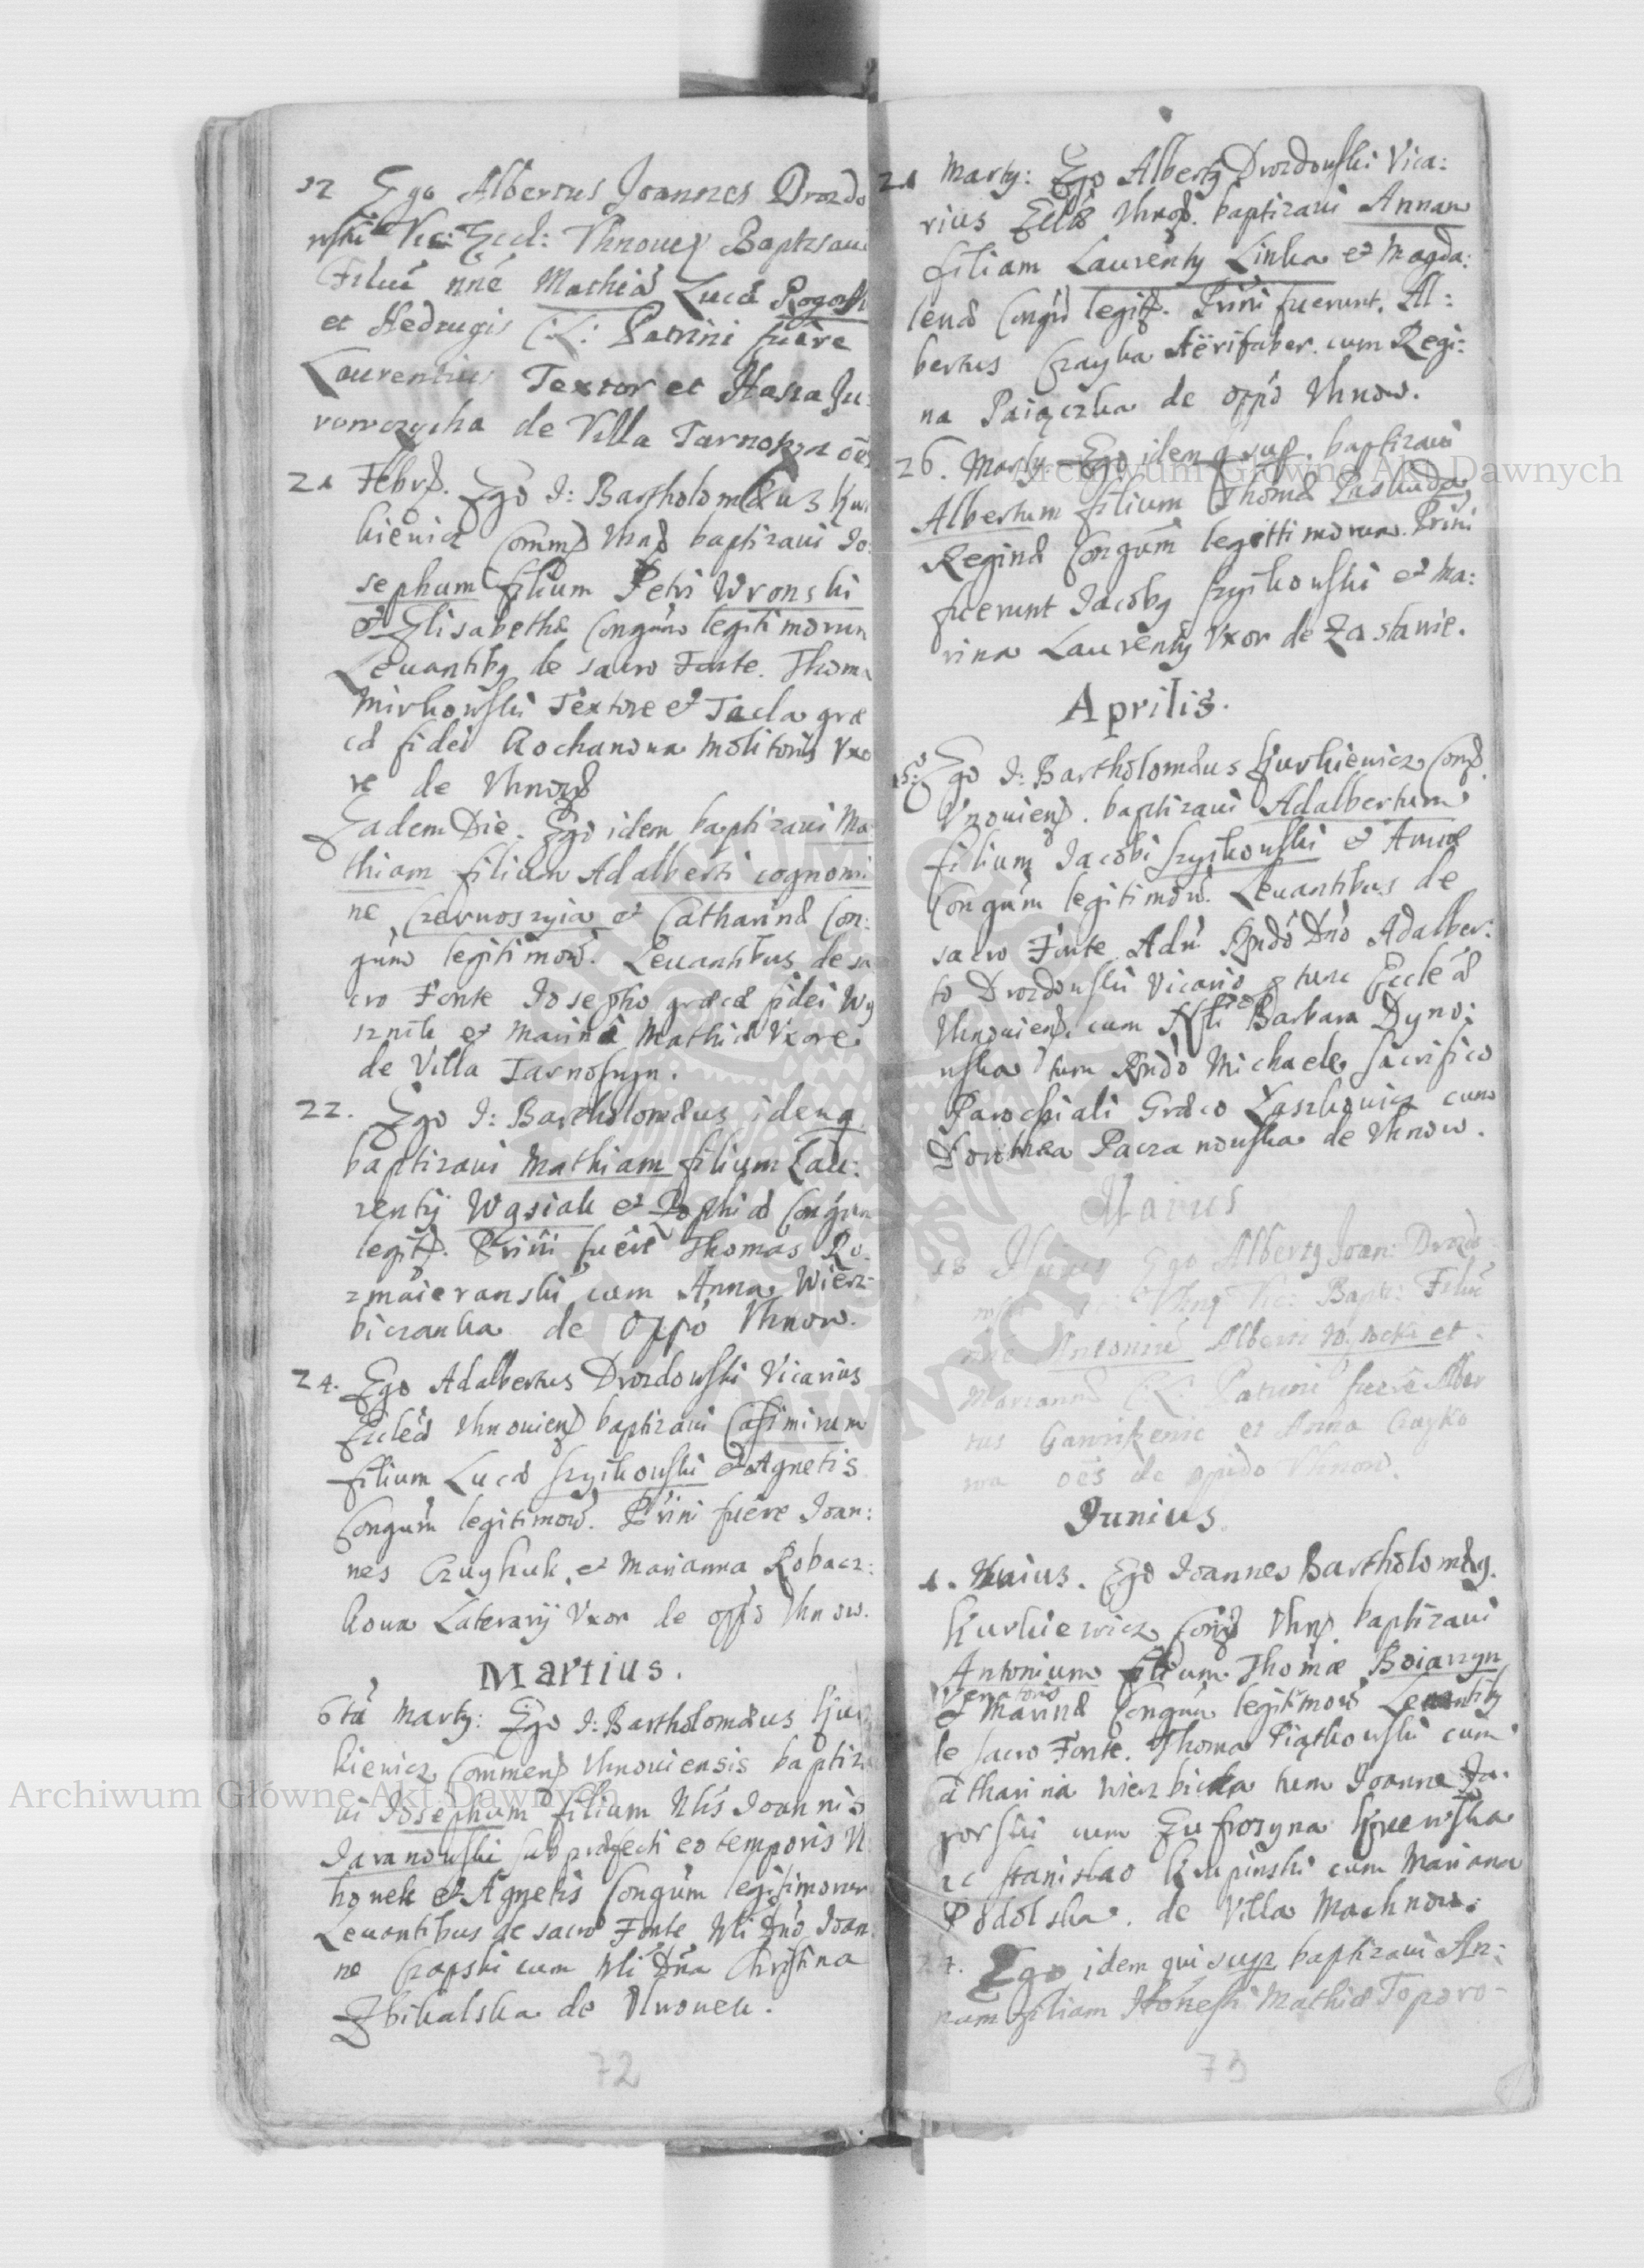 12 Ego Albertus Joannes Drozdo
wski Vic: Eccl: Vhnouię Baptisaui
Filiũ nñe Mathiã Lucæ Rogoski
et Hedvigis C: L: Patrini fuere
Laurentius Textor et Hasia Ju:
rowczycha de Villa Tarnoszyn oẽs
21 Febrs. Ego J: Bartholomæus Kur
kiewicz Comms Vhns baptizaui Jo:
sephum filium Petri Wronski
et Elisabethæ Congũm legitimorum
Leuantibg de sacro Fonte. Thoma
Mirkowski Textore et Tecla græ
cæ fidei Rochanowa Molitoris Vxo
re de Vhnow
Eadem Die. Ego idem baptizaui Ma
thiam filium Adalberti cognomi
ne Czarnoszyia et Catharinæ Con:
gũm legitimorũ. Leuantibus de sa
cro Fonte Josepho græcæ fidei Wy
sznik et Marina Mathiæ Vxore
de Villa Tarnoszyn.
22. Ego J: Bartholomæus idem q
baptizaui Mathiam filium Lau:
rentij Wąsiak et Zophiæ Congũm
legits. Prini fuere Thomas Ro
zmaieranski cum Anna Wierz-
biczanka de Oppõ Vhnow.
24. Ego Adalbertus Drozdowski Vicarius
Ecclæ Vhnouiens baptizaui Casimirum
filium Lucæ Szyikowski et Agnetis
Congũm legitimorũ. Prini fuere Joan:
nes Czuyhuk et Marianna Robacz:
kowa Laterarij Vxor de oppõ Vhnow.
Martius.
6tã Marty: Ego J: Bartholomæus Kur
kiewicz Commens Vhnouiensis baptiza
ui Josephum filium Mlis Joannis
Jaranowski subpræfecti eo temporis V
hnouek et Agnetis Congũm legitimorum
Leuantibus de sacro Fonte Mli Dnõ Joan
ne Czapski cum Mli Dnã Christina
Zbikalska de Vhnouek.
72
21 Marty: Ego Albertg Drozdowski Vica:
rius Ecclæ Vhnos. baptizaui Annam
filiam Laurenty Linka et Magda:
lenæ Congũ legits. Prini fuerunt. Al:
bertus Czayka Aërifaber cum Regi:
na Paiączka de oppõ Vhnow.
26. Marty. Ego idem q sup. baptizaui
Albertum filium Thomæ Paskuda
Reginæ Congum legittimorum. Prini
fuerunt Jacobg Szyikowski et Ma:
rina Laurenty Vxor de Zastawie.
Aprilis.
15. Ego J: Bartholomæus Kurkiewicz Coms
Vnouiens. baptizaui Adalbertum
filium Jacobi Szyikowski et Annæ
Congũm legitimorũ. Leuantibus de
sacro Fonte Adm Rndõ Dnõ Adalber:
to Drozdowski Vicario p tunc Ecclẽæ
Vhnouiens. cum Barbara Dyno:
wska tum Rndõ Michaele Sacrifico
Parochiali Græco Laszkowicz cum
Dorothea Paczanowska de Vhnow.
Maius
18 Huius Ego Albertg Joan: Drozdo
wski Vhng Vic: Bapt: Filiũ
nñe Antoniũ Alberti Wysocki et
Mariannæ C: L: Patrini fuere Alber
tus Gawrikewic et Anna Czayko
wa oẽs de opido Vhnow.
Junius.
1. Huius. Ego Joannes Bartholomæg.
Kurkiewicz Coms Vhns. baptizaui
Antonium filium Thomæ Boiarzyn
Venatoris
et Marinæ Congũm legitimorũ Leuantibg
de sacro Fonte. Thoma Piątkowski cum
Catharina Wierzbicka tum Joanne Ja:
worski cum Eufrozyna Kijewska
ac Stanislao Krupinski cum Mariana
Podolska. de Villa Machnow.
24. Ego idem qui supr baptizaui An:
nam filiam Honesti Mathiæ Toporo-
73
Archiwum Główne Akt Dawnych
Archiwum Główne Akt Dawnych